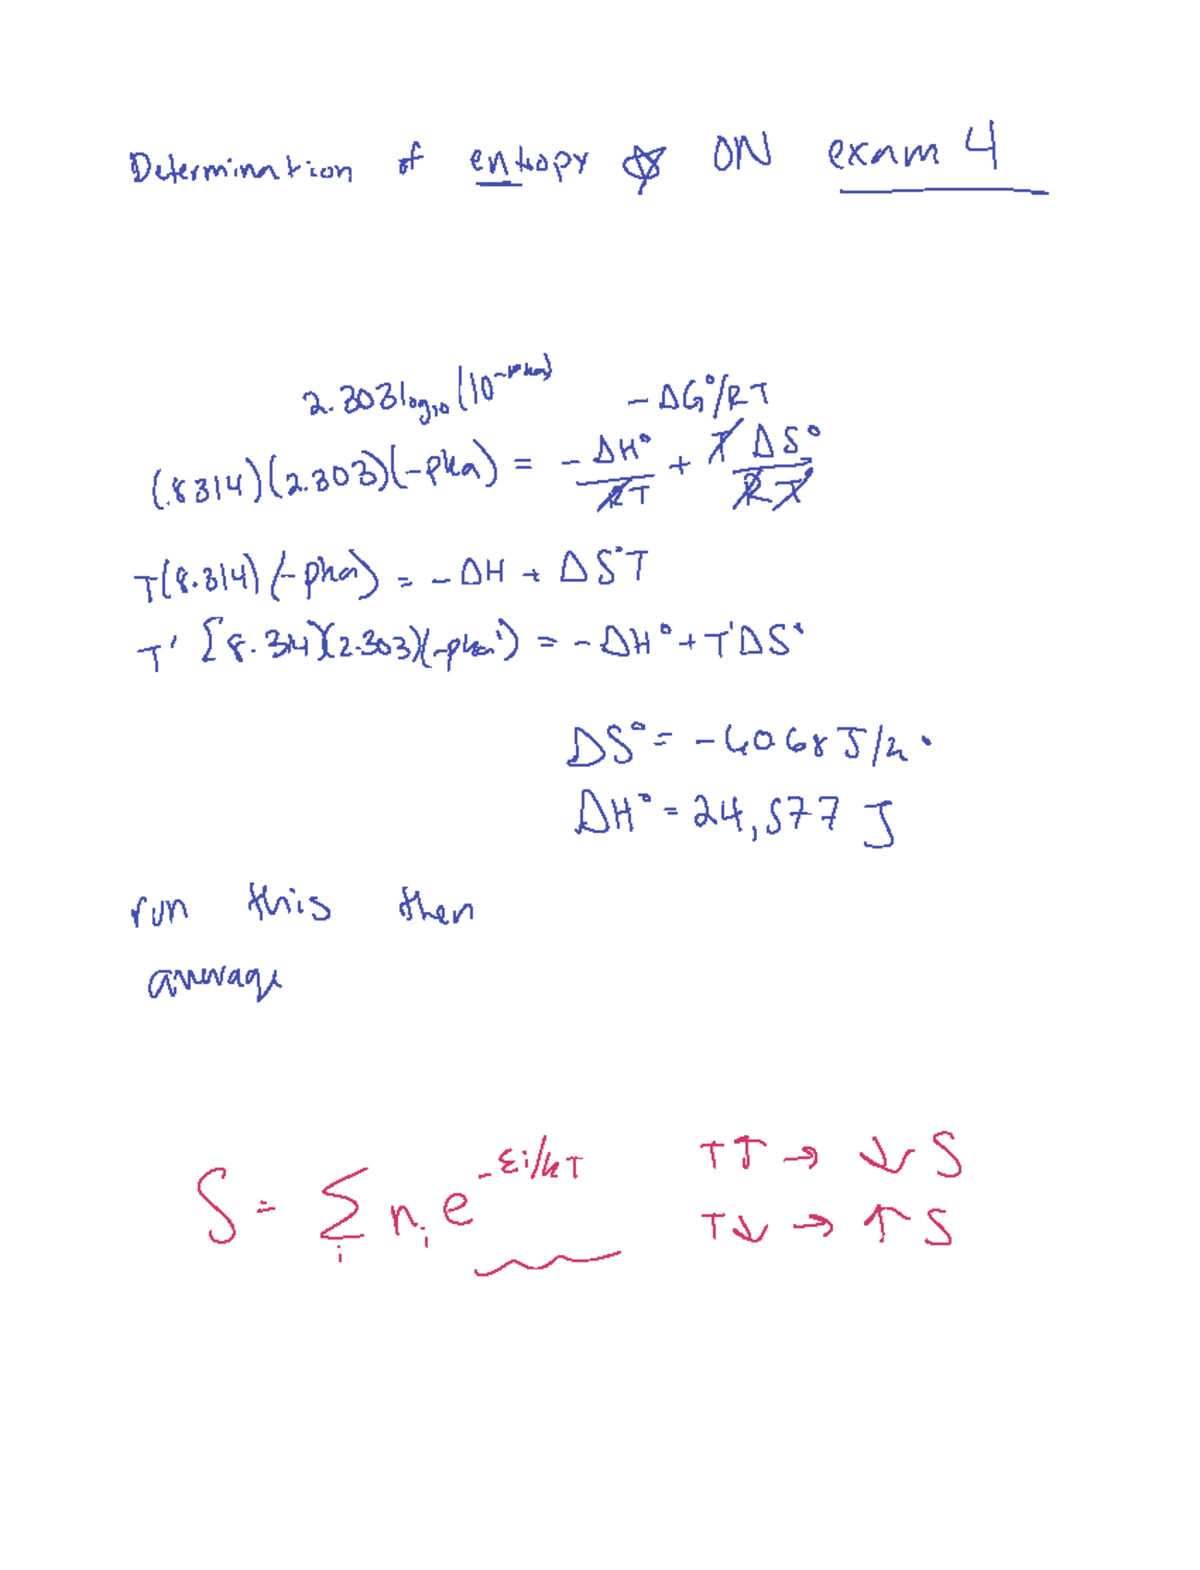 Determination of entropy ☆ ON exam 4
2.303log₁₀(10^-pka) -ΔG°/RT
(.8314)(2.303)(-pka) = -ΔH°/RT + TΔS°/RT
T(8.314)(-pka) = -ΔH + ΔS°T
T' [8.314)(2.303)(-pka') = -ΔH° + T'ΔS°
ΔS° = -60.68 J/k •
ΔH° = 24,577 J
run this then
average
S = Σᵢ nᵢ e^-εi/kT
T↑ → ↓ S
T↓ → ↑ S